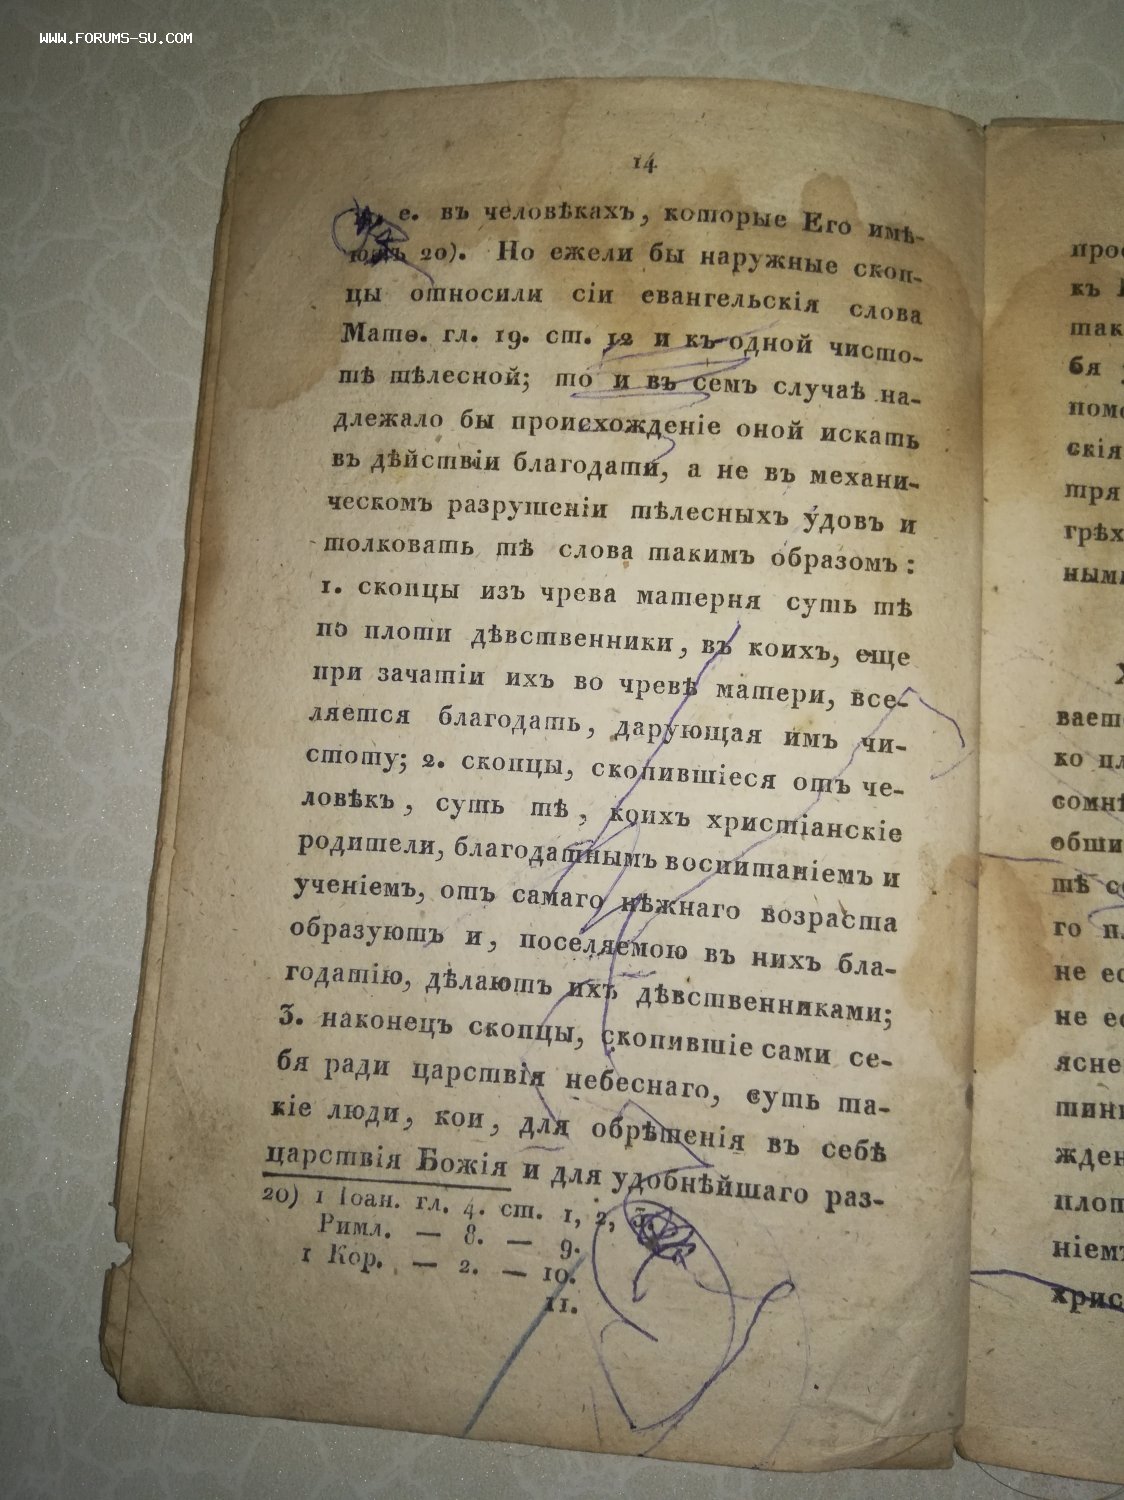 WWW.FORUMS-SU.COM
14
е. въ человѣкахъ, которые Его имѣ-
ютъ 20). Но ежели бы наружные скоп-
цы относили сіи евангельскія слова
Матѳ. гл. 19. ст. 12 и къ одной чисто-
тѣ тѣлесной; то и въ семъ случаѣ на-
длежало бы происхожденіе оной искать
въ дѣйствіи благодати, а не въ механи-
ческомъ разрушеніи тѣлесныхъ у́довъ и
толковать тѣ слова такимъ образомъ:
1. скопцы изъ чрева матерня суть тѣ
по плоти дѣвственники, въ коихъ, еще
при зачатіи ихъ во чревѣ матери, все-
ляется благодать, дарующая имъ чи-
стоту; 2. скопцы, скопившіеся отъ че-
ловѣкъ, суть тѣ, коихъ христіанскіе
родители, благодатнымъ воспитаніемъ и
ученіемъ, отъ самаго нѣжнаго возраста
образуютъ и, поселяемою въ нихъ бла-
годатію, дѣлаютъ ихъ дѣвственниками;
3. наконецъ скопцы, скопившіе сами се-
бя ради царствія небеснаго, суть та-
кіе люди, кои, для обрѣтенія въ себѣ
царствія Божія и для удобнѣйшаго раз-
20) 1 Іоан. гл. 4. ст. 1, 2, 3.
Римл. — 8. — 9.
1 Кор. — 2. — 10.
11.
прос
къ
так
бя
помо
скія
тря
грѣх
ными
ваетс
ко пл
сомнѣ
общи
тѣ со
го пл
не ес
не ес
ясне
тини
жден
плот
ніемъ
хрис